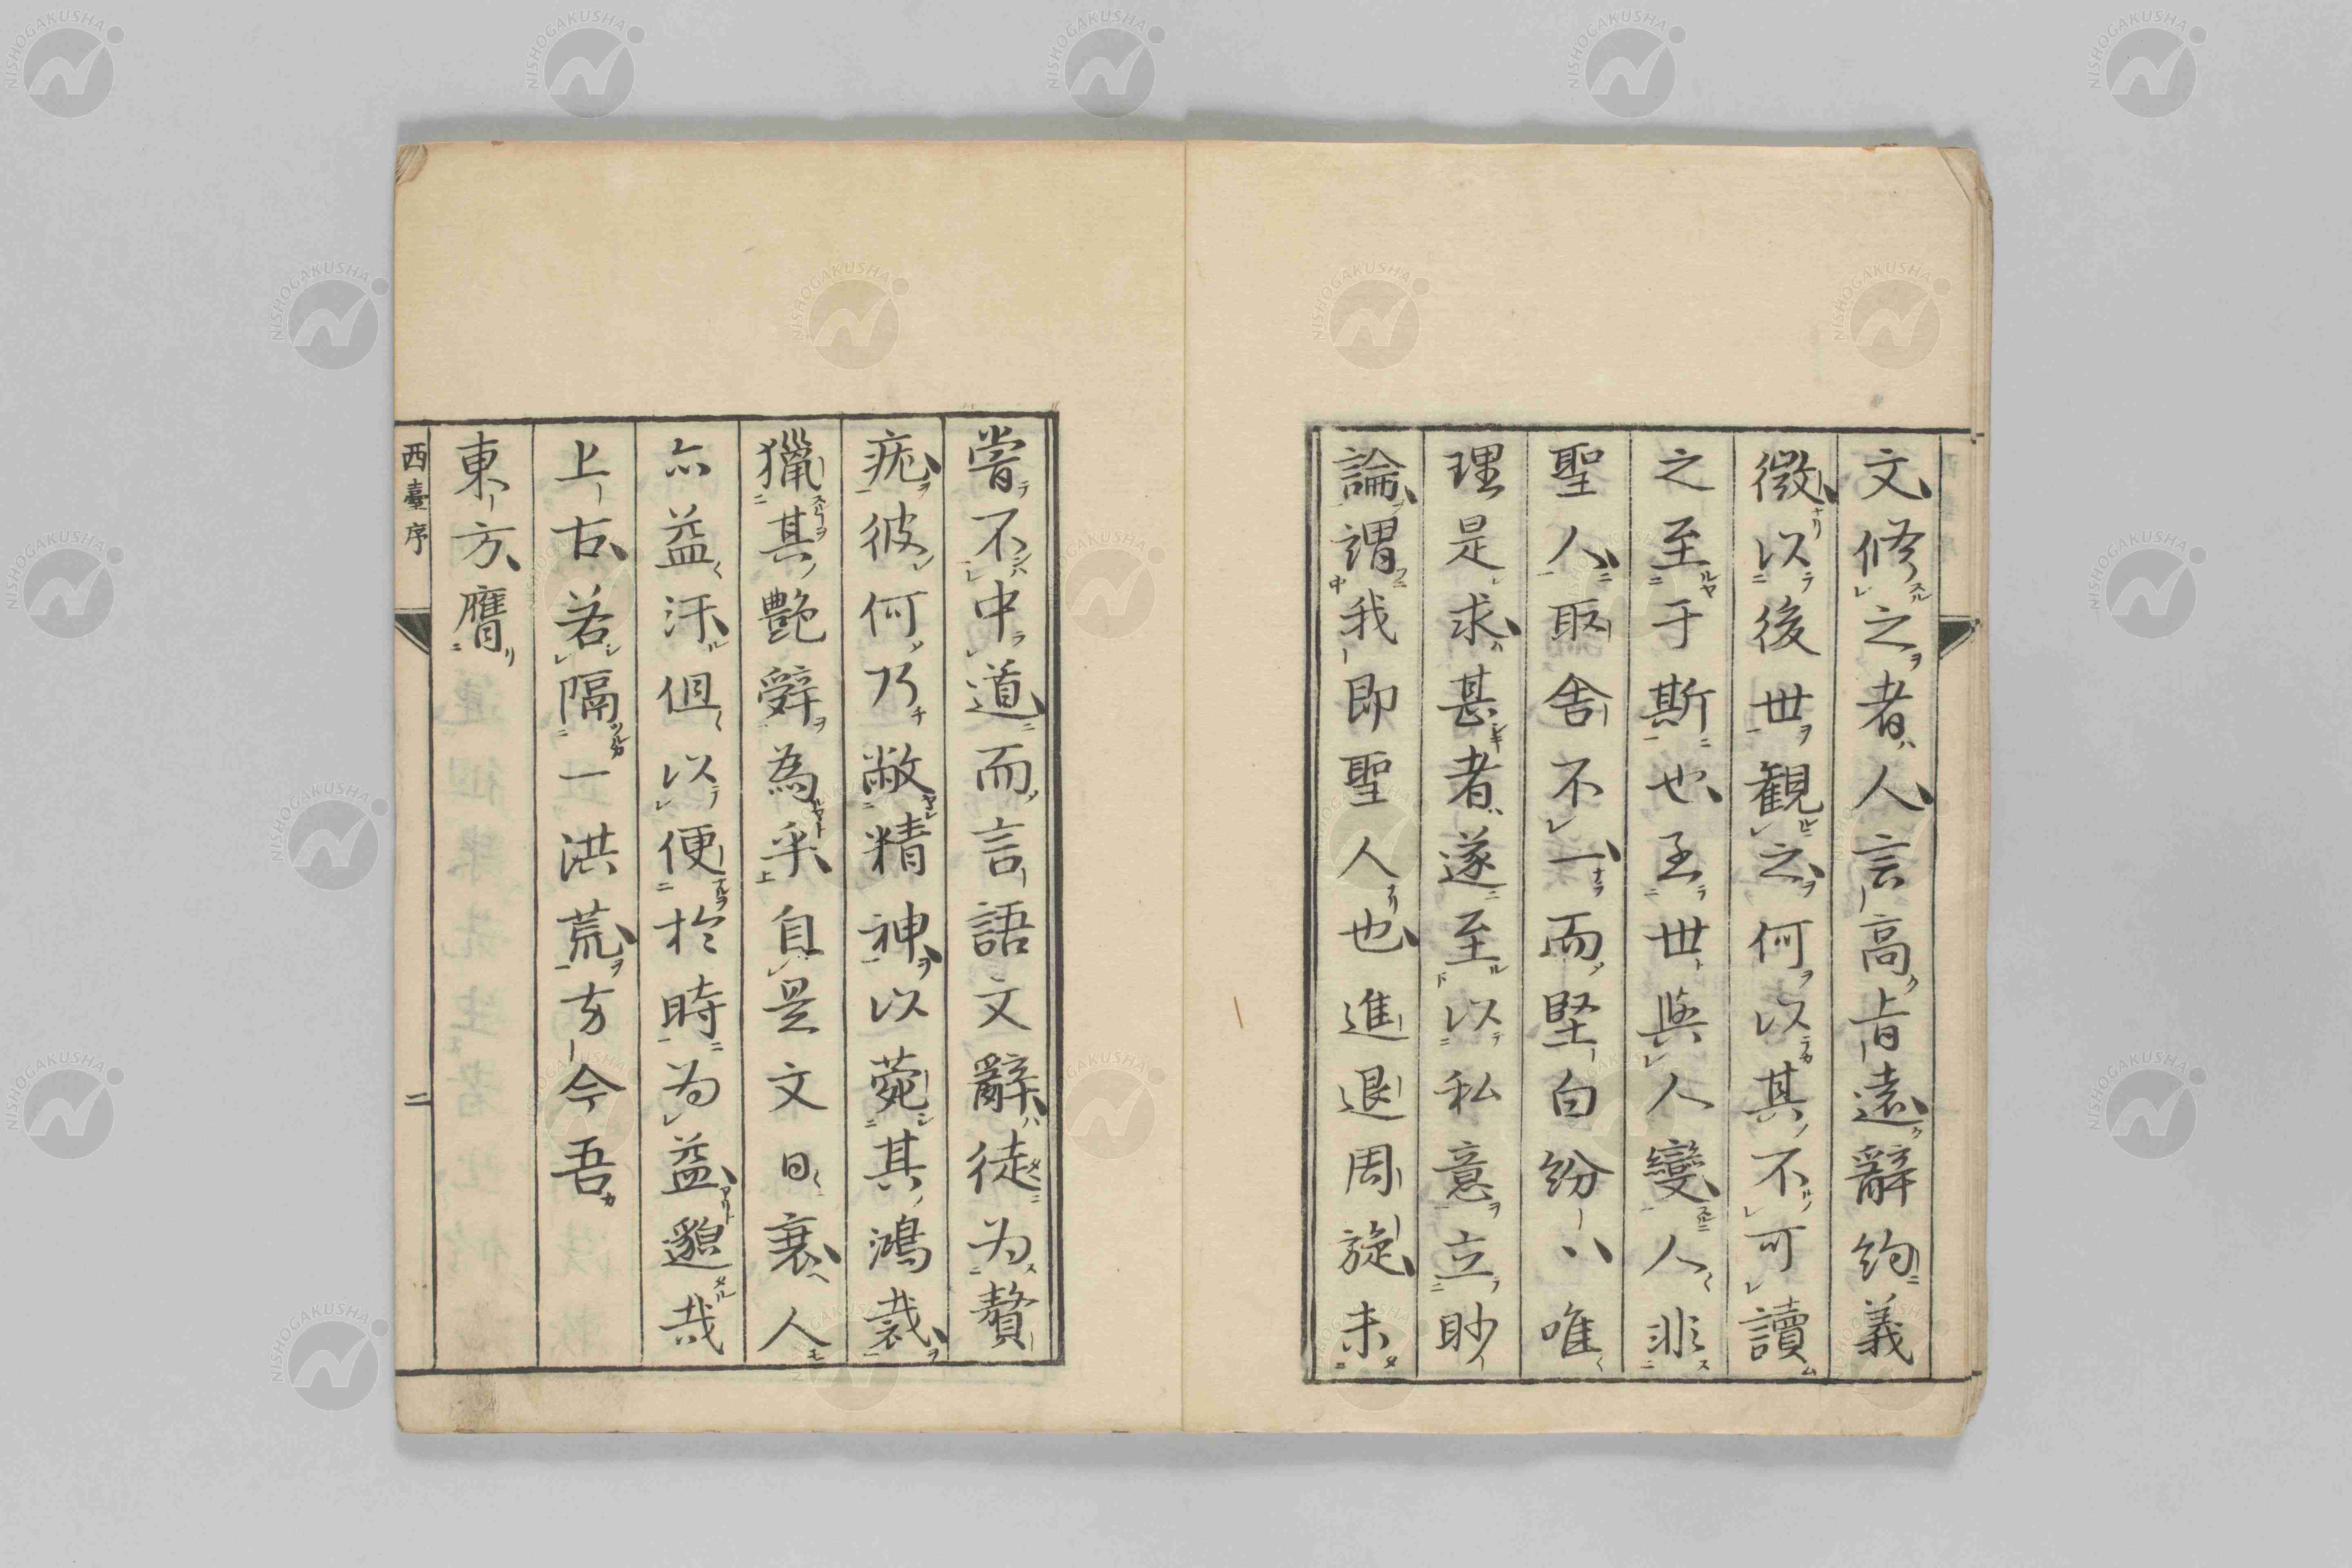 文修之者人言高旨遠辭約義
微以後世観之何以其不可讀
之至于斯也至世與人變人非
聖人取舍不一而堅白紛〻唯
理是求甚者遂至以私意立眇
論謂我即聖人也進退周旋未
嘗不中道而言語文辭徒为贅
疣彼何乃敝精神以菀其鴻裁
獵其艶辭為乎自是文日衰人
亦益汙但以便於時为益邈哉
上古若隔一洪荒方今吾
東方膺
西臺序 二